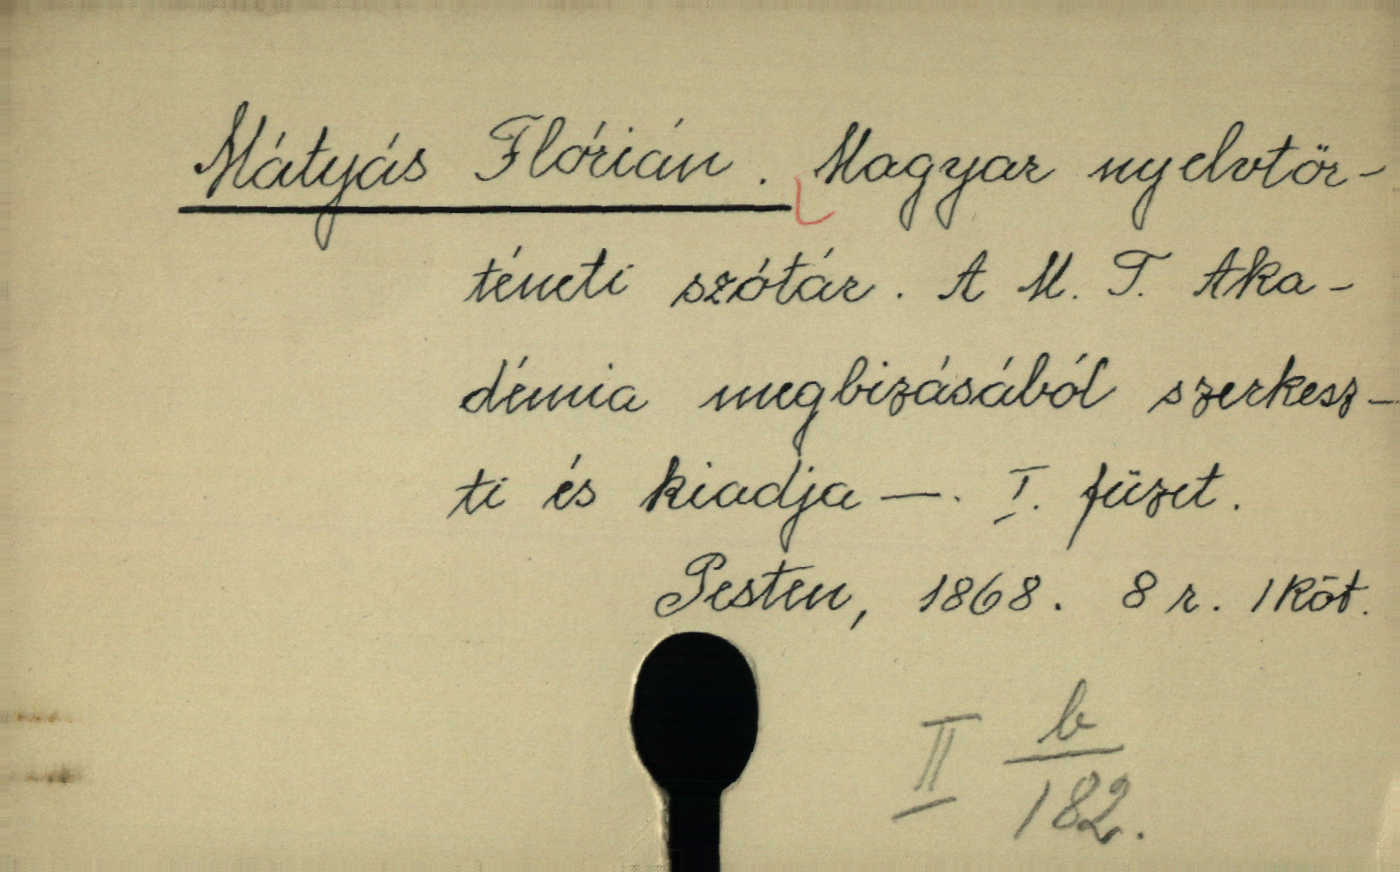 Mátyás Flórián. Magyar nyelvtör-
téneti szótár. A M. T. Aka-
démia megbizásából szerkesz-
ti és kiadja —. I. füzet.
Pesten, 1868. 8 r. 1 köt.
II b/182.